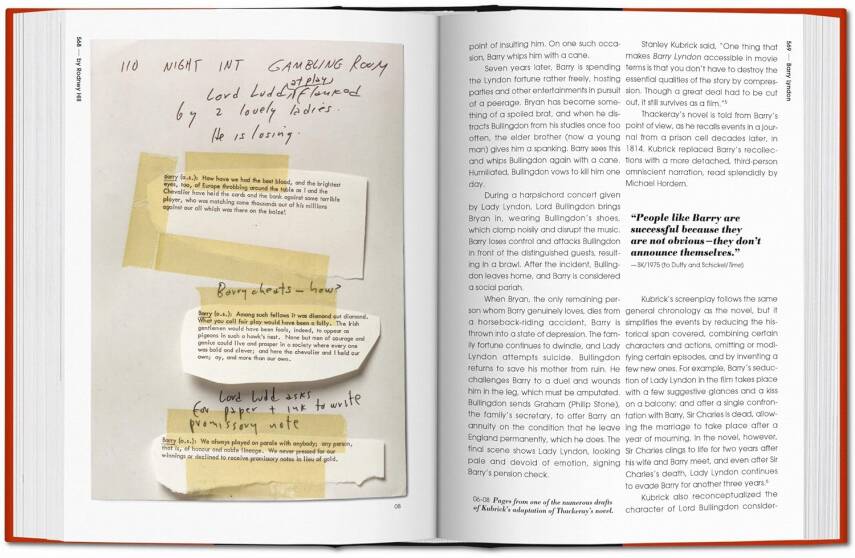 568 — by Rodney Hill
110 NIGHT INT GAMBLING ROOM
at play
Lord Ludd flanked
by 2 lovely ladies.
He is losing.
Barry (o.s.): How have we had the best blood, and the brightest
eyes, too, of Europe throbbing around the table as I and the
Chevalier have held the cards and the bank against some terrible
player, who was matching some thousands out of his millions
against our all which was there on the baize!
Barry cheats — how?
Barry (o.s.): Among such fellows it was diamond cut diamond.
What you call fair play would have been a folly. The Irish
gentlemen would have been fools, indeed, to appear as
pigeons in such a hawk's nest. None but men of courage and
genius could live and prosper in a society where every one
was bold and clever; and here the chevalier and I held our
own; ay, and more than our own.
Lord Ludd asks
for paper + ink to write
promissory note
Barry (o.s.): We always played on parole with anybody; any person,
that is, of honour and noble lineage. We never pressed for our
winnings or declined to receive promissory notes in lieu of gold.
08
point of insulting him. On one such occa-
sion, Barry whips him with a cane.
Seven years later, Barry is spending
the Lyndon fortune rather freely, hosting
parties and other entertainments in pursuit
of a peerage. Bryan has become some-
thing of a spoiled brat, and when he dis-
tracts Bullingdon from his studies once too
often, the elder brother (now a young
man) gives him a spanking. Barry sees this
and whips Bullingdon again with a cane.
Humiliated, Bullingdon vows to kill him one
day.
During a harpsichord concert given
by Lady Lyndon, Lord Bullingdon brings
Bryan in, wearing Bullingdon's shoes,
which clomp noisily and disrupt the music.
Barry loses control and attacks Bullingdon
in front of the distinguished guests, result-
ing in a brawl. After the incident, Bulling-
don leaves home, and Barry is considered
a social pariah.
When Bryan, the only remaining per-
son whom Barry genuinely loves, dies from
a horseback-riding accident, Barry is
thrown into a state of depression. The fam-
ily fortune continues to dwindle, and Lady
Lyndon attempts suicide. Bullingdon
returns to save his mother from ruin. He
challenges Barry to a duel and wounds
him in the leg, which must be amputated.
Bullingdon sends Graham (Philip Stone),
the family's secretary, to offer Barry an
annuity on the condition that he leave
England permanently, which he does. The
final scene shows Lady Lyndon, looking
pale and devoid of emotion, signing
Barry's pension check.
06-08 Pages from one of the numerous drafts
of Kubrick's adaptation of Thackeray's novel.
Stanley Kubrick said, "One thing that
makes Barry Lyndon accessible in movie
terms is that you don't have to destroy the
essential qualities of the story by compres-
sion. Though a great deal had to be cut
out, it still survives as a film."5
Thackeray's novel is told from Barry's
point of view, as he recalls events in a jour-
nal from a prison cell decades later, in
1814. Kubrick replaced Barry's recollec-
tions with a more detached, third-person
omniscient narration, read splendidly by
Michael Hordern.
"People like Barry are
successful because they
are not obvious—they don't
announce themselves."
—SK/1975 (to Duffy and Schickel/Time)
Kubrick's screenplay follows the same
general chronology as the novel, but it
simplifies the events by reducing the his-
torical span covered, combining certain
characters and actions, omitting or modi-
fying certain episodes, and by inventing a
few new ones. For example, Barry's seduc-
tion of Lady Lyndon in the film takes place
with a few suggestive glances and a kiss
on a balcony; and after a single confron-
tation with Barry, Sir Charles is dead, allow-
ing the marriage to take place after a
year of mourning. In the novel, however,
Sir Charles clings to life for two years after
his wife and Barry meet, and even after Sir
Charles's death, Lady Lyndon continues
to evade Barry for another three years.6
Kubrick also reconceptualized the
character of Lord Bullingdon consider-
569 — Barry Lyndon